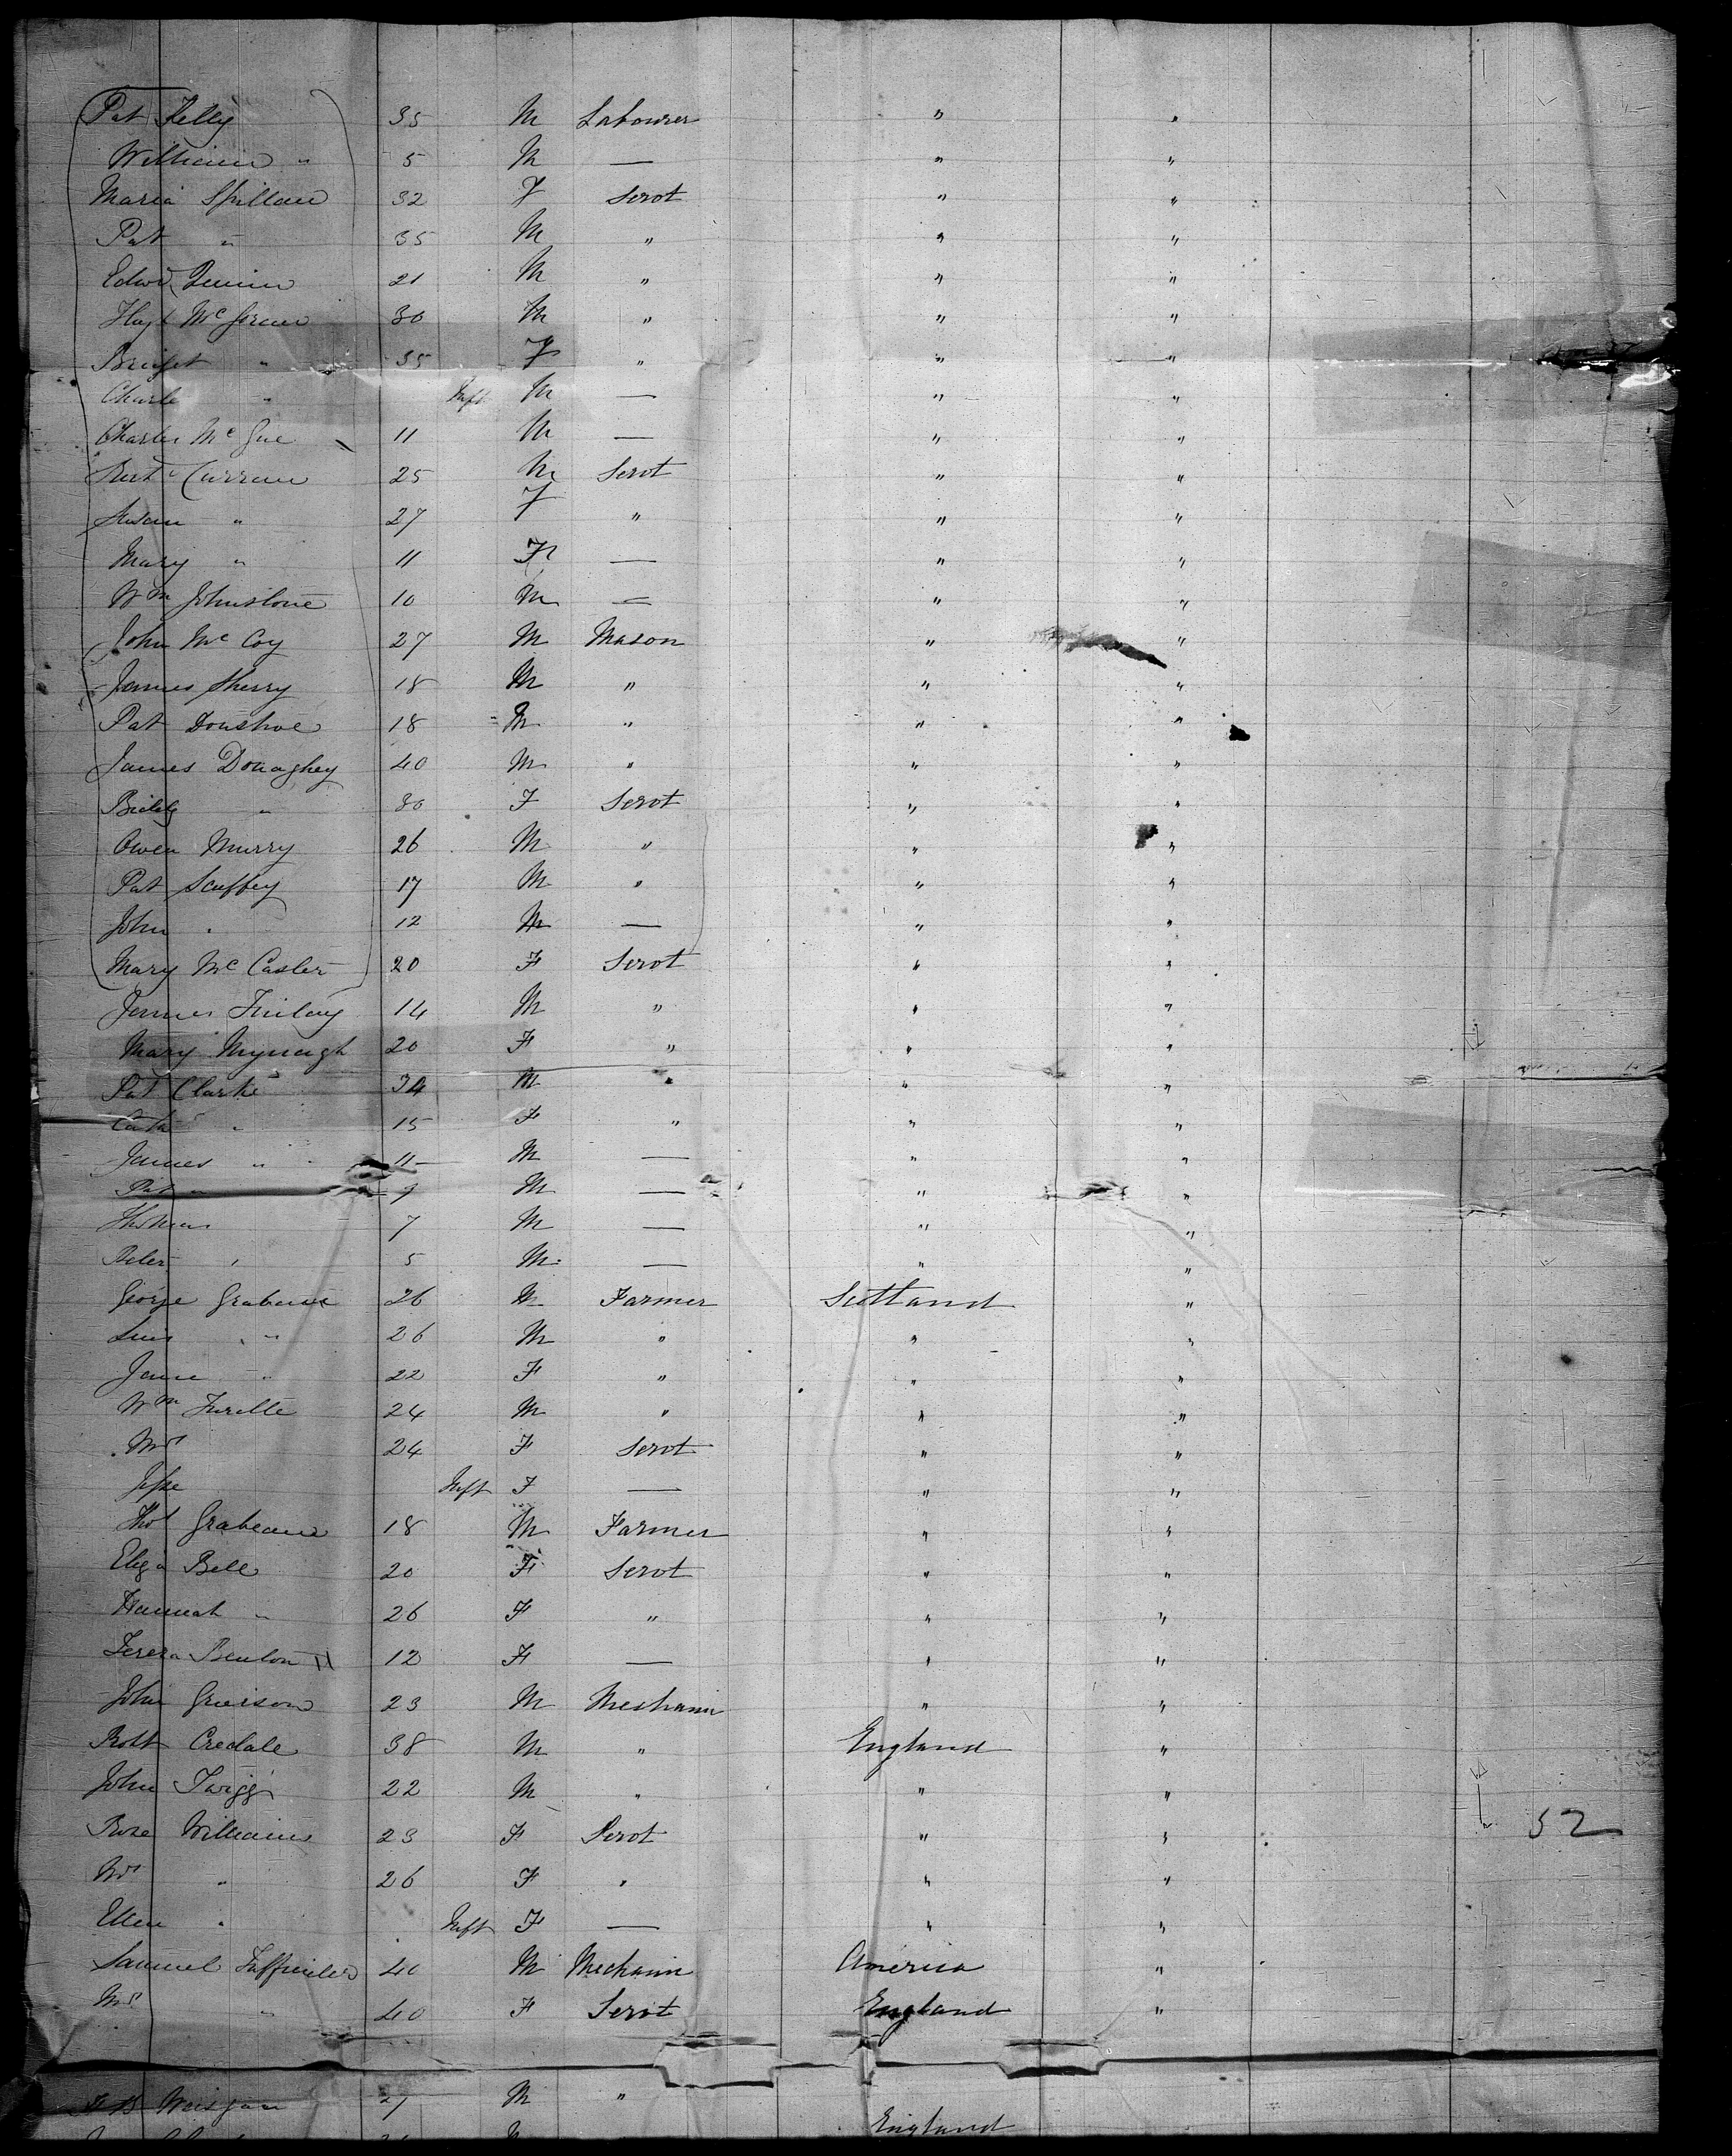 Pat Kelly 35 M Labourer " "
William " 5 M — " "
Maria Spillane 32 F Servt " "
Pat " 35 M " " "
Edwd Quinn 21 M " " "
Mc 30 M " " "
Bridget " 35 F " " "
Charle " Inft M — " "
Charles Mc Gue 11 M — " "
Curran 25 M Servt " "
Susan " 27 F " " "
Mary " 11 F — " "
Wm Johnstone 10 M — " "
John Mc Coy 27 M Mason " "
James Sherry 18 M " " "
Pat Donohoe 18 M " " "
James Donaghey 40 M " " "
Biddy " 30 F Servt " "
Owen Murry 26 M " " "
Pat Scuffey 17 M " " "
John " 12 M — " "
Mary Mc Casler 20 F Servt " "
James Finlay 14 M " " "
Mary Mynagh 20 F " " "
Pat Clarke 34 M " " "
Cath " 15 F " " "
James " 11 M — " "
Pat " 9 M — " "
Thomas 7 M — " "
Peter " 5 M — " "
George Grahame 26 M Farmer Scotland "
" 26 M " " "
Jane " 22 F " " "
Wm 24 M " " "
Mrs 24 F Servt " "
Jesse Inft F — " "
Thos Grahame 18 M Farmer " "
Eliza Bell 20 F Servt " "
Hannah " 26 F " " "
Benton 12 F — " "
John Grierson 23 M Mechanic " "
Robt Credale 38 M " England "
John Twigg 22 M " " "
Rose Williams 23 F Servt " " 52
Mrs " 26 F " " "
Ellen " Inft F — " "
Samuel 40 M Mechanic America "
Mrs " 40 F Servt England "
27 M "
England